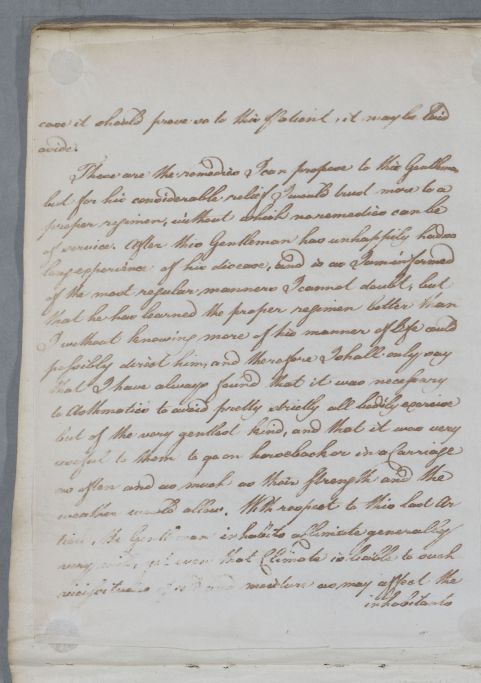 case it should prove so to this Patient, it may be laid
aside.
These are the remedies I can propose to this Gentleman
but for his considerable relief I would trust more to a
proper regimen, without which no remedies can be
of service. After this Gentleman has unhappily had so
long experience of his disease, and is as I am informed
of the most regular manners I cannot doubt, but
that he has learned the proper regimen better than
I without knowing more of his manner of life could
possibly direct him, and therefore I shall only say
that I have always found that it was necessary
to Asthmatics to avoid pretty strictly all bodily exercise
but of the very gentlest kind, and that it was very
useful to them to go on horseback or in a Carriage
as often and as much as their Strength and the
weather would allow. With respect to this last Ar
ticle, the Gentleman inhabits a Climate generally
very yet even that Climate is liable to such
vicissitudes of and moisture as may affect the
inhabitants